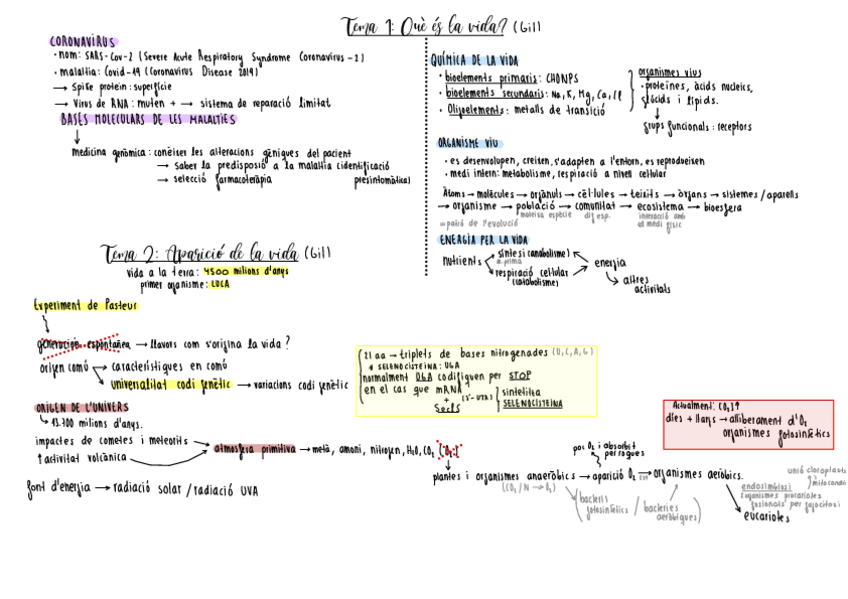 Tema 1: Què és la vida? (Gil)
CORONAVIRUS
• nom: SARS-Cov-2 (Severe Acute Respiratory Syndrome Coronavirus-2)
• malaltia: Covid-19 (Coronavirus Disease 2019)
→ Spike protein: superfície
→ Virus de RNA: muten + → sistema de reparació limitat
BASES MOLECULARS DE LES MALALTIES
medicina genòmica: conèixer les alteracions gèniques del pacient
→ Saber la predisposió a la malaltia (identificació
presimtomàtica)
→ selecció farmacoteràpia
QUÍMICA DE LA VIDA
• bioelements primaris: CHONPS
• bioelements secundaris: Na, K, Mg, Ca, Cl
• Oligoelements: metalls de transició
organismes vius
• proteïnes, àcids nucleics,
glúcids i lípids.
grups funcionals: receptors
ORGANISME VIU
• es desenvolupen, creixen, s'adapten a l'entorn, es reprodueixen
• medi intern: metabolisme, respiració a nivell cellular
Àtoms → molècules → orgànuls → cèl·lules → teixits → òrgans → sistemes/aparells
→ organisme → població → comunitat → ecosistema → biosfera
mateixa espècie
dif esp.
interacció amb
el medi físic
de l'evolució
ENERGIA PER LA VIDA
nutrients
síntesi (anabolisme)
m. prima
respiració cellular
(catabolisme)
energia
altres
activitats
Tema 2: Aparició de la vida (Gil)
vida a la terra: 4500 milions d'anys
primer organisme: LUCA
Experiment de Pasteur
generació espontànea → llavors com s'origina la vida?
origen comú
característiques en comú
universalitat codi genètic → variacions codi genètic
21 aa → triplets de bases nitrogenades (U, C, A, G)
SELENOCISTEÏNA: UGA
normalment UGA codifiquen per STOP
en el cas que mRNA
+
SecIS
(3'-UTR)
sintetitza
SELENOCISTEÏNA
ORIGEN DE L'UNIVERS
13.700 milions d'anys.
impactes de cometes i meteorits
↑ activitat volcànica
atmosfera primitiva → metà, amoni, nitrogen, H₂O, CO₂ (O₂!)
font d'energia → radiació solar / radiació UVA
plantes i organismes anaeròbics → aparició O₂ → organismes aeròbics.
(CO₂ / N → O₂)
poc O₂ i absorbit
per roques
(bacteris
fotosintètics / bacteries
aeròbiques)
eucariotes
endosimbiosi
organismes procariotes
fusionats per fagocitosi
unió cloroplasts
mitocondri
Actualment: CO₂↑
dies + llargs → alliberament d'O₂
organismes fotosintètics